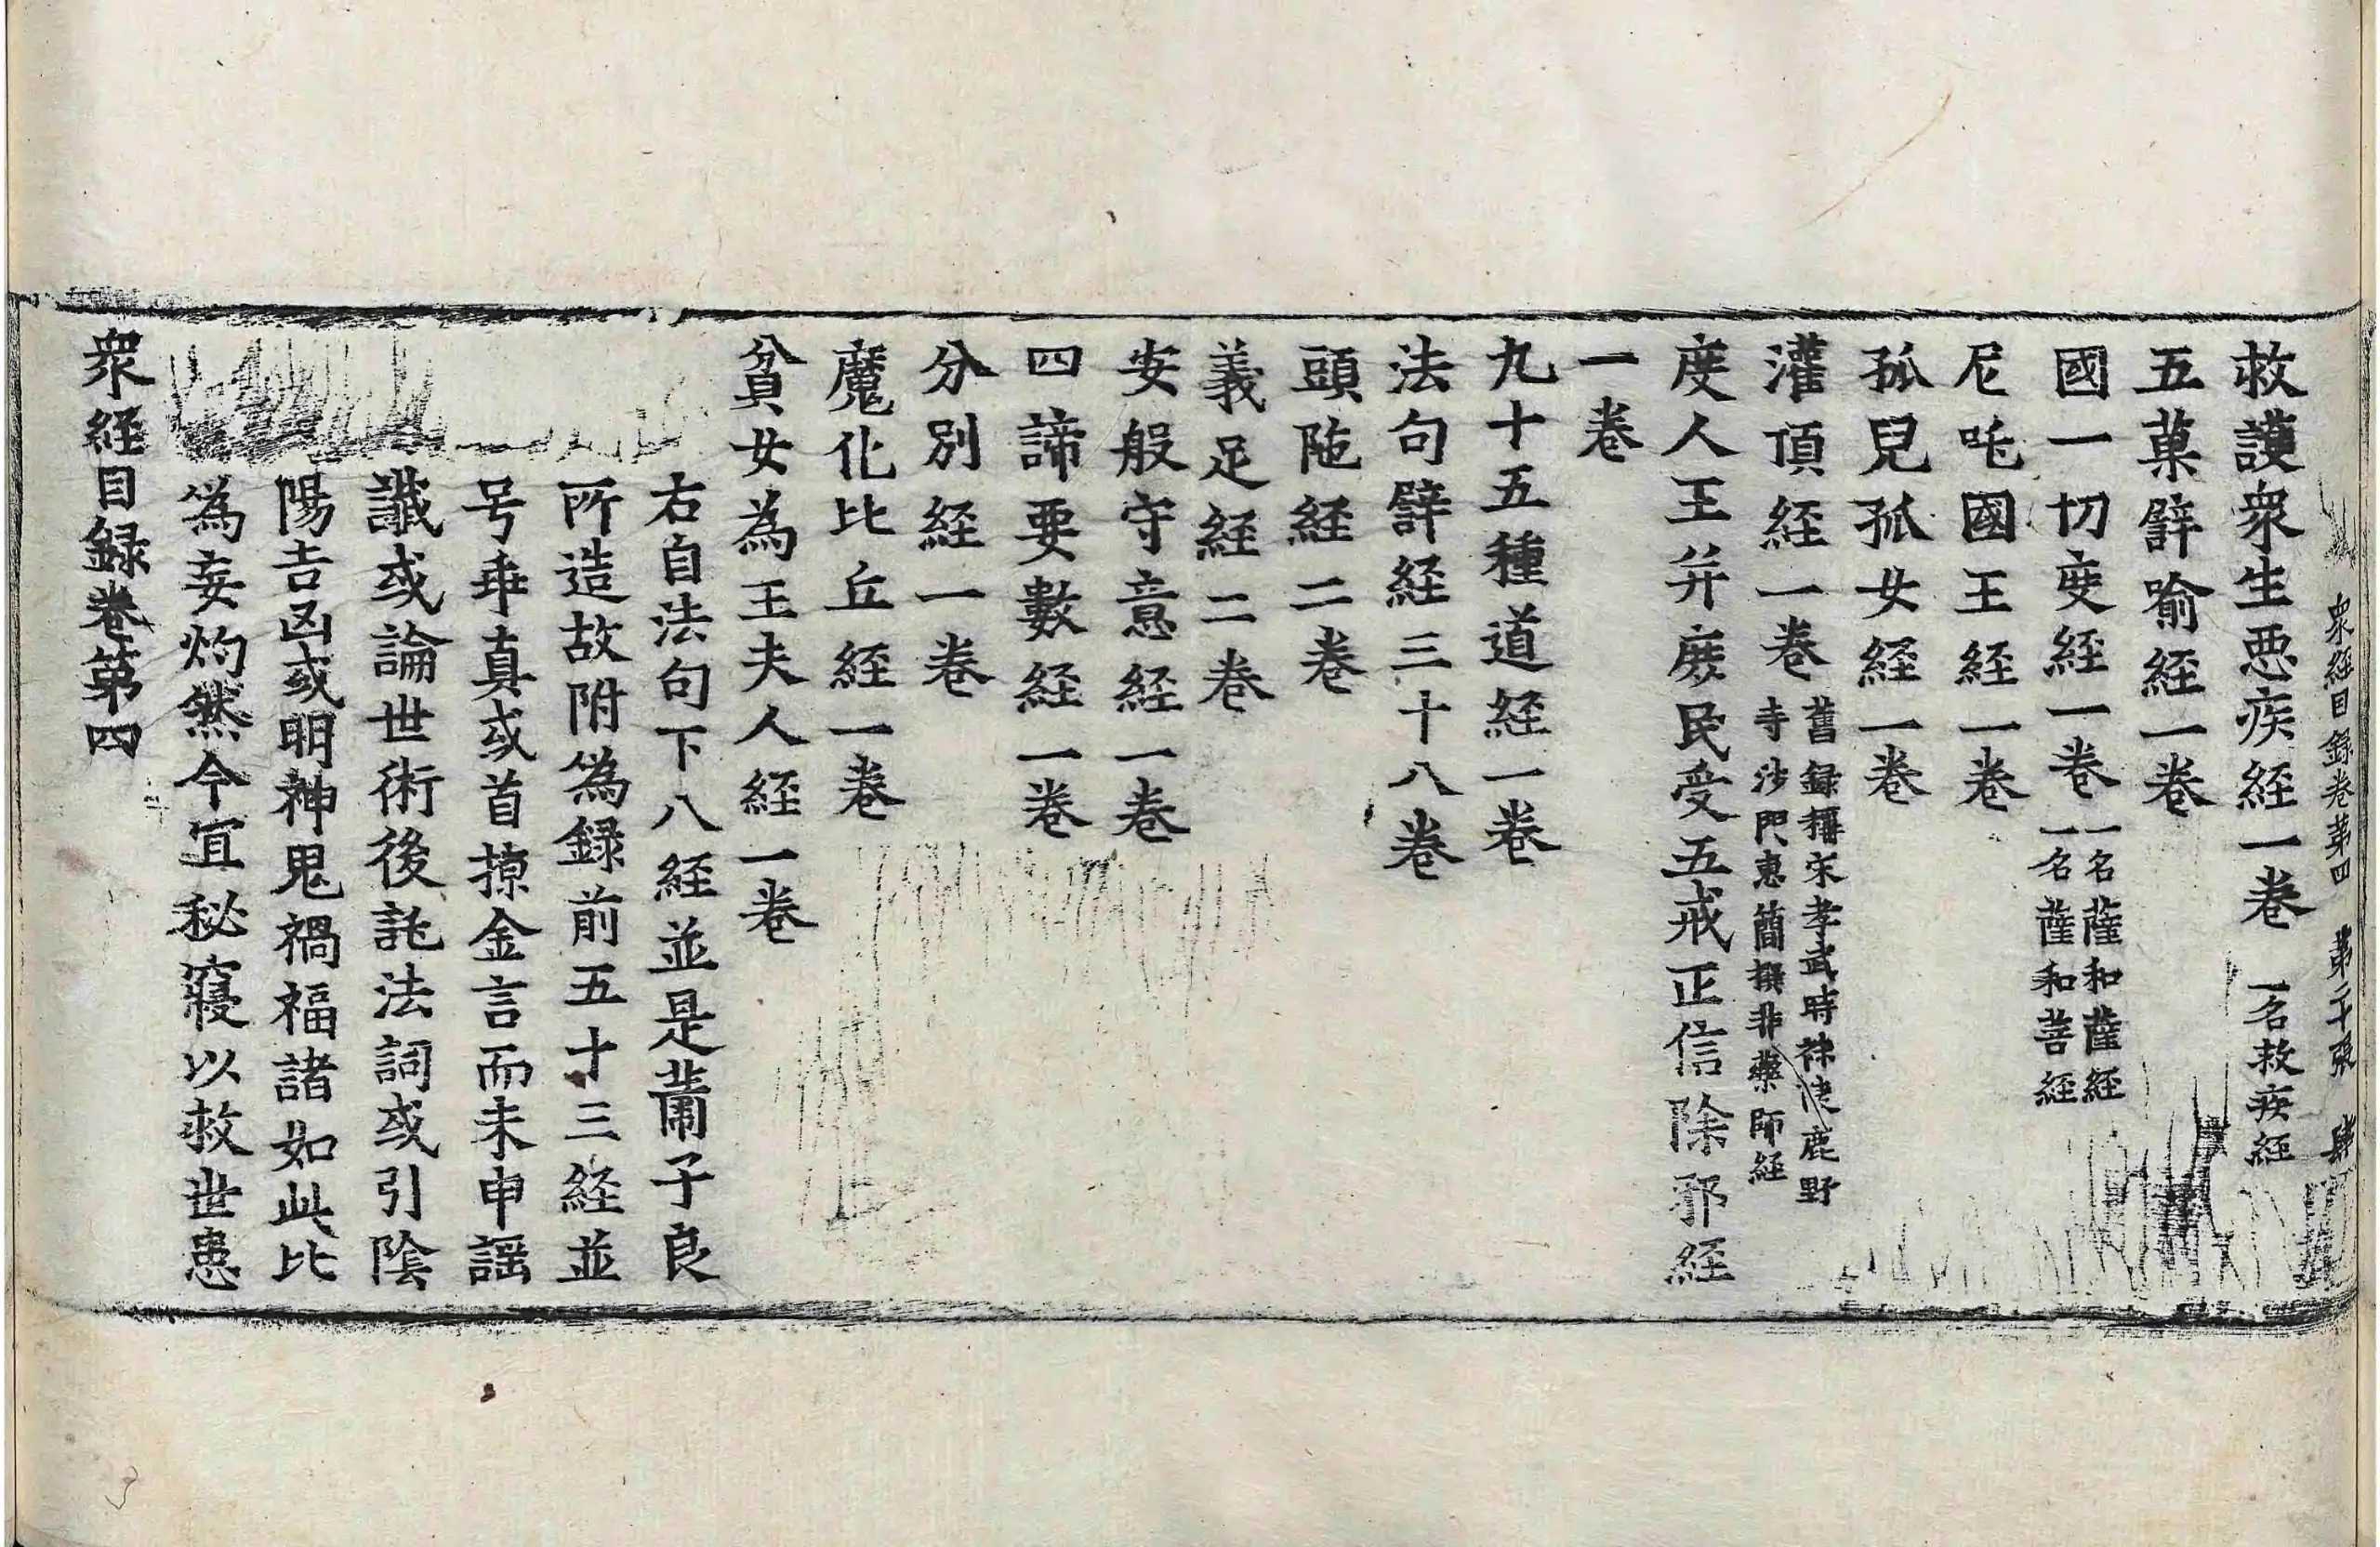 衆經目錄卷第四　第二十張　肆
救護衆生惡疾經一卷 一名救疾經
五菓譬喻經一卷
國一切度經一卷 一名薩和薩經
一名薩和菩經
尼吒國王經一卷
孤兒孤女經一卷
灌頂經一卷 舊錄稱宋孝武時秣陵鹿野
寺沙門惠簡撰非藥師經
度人王并庶民受五戒正信除邪經
一卷
九十五種道經一卷
法句譬経三十八卷
頭陁経二卷
義足経二卷
安般守意経一卷
四諦要數経一卷
分別経一卷
魔化比丘經一卷
貧女為王夫人経一卷
右自法句下八経並是蕭子良
所造故附為錄前五十三経並
号乖真或首掠金言而末申謡
讖或論世術後託法詞或引陰
陽吉凶或明神鬼禍福諸如此比
偽妄灼然今宜秘寢以救世患
衆経目錄卷第四